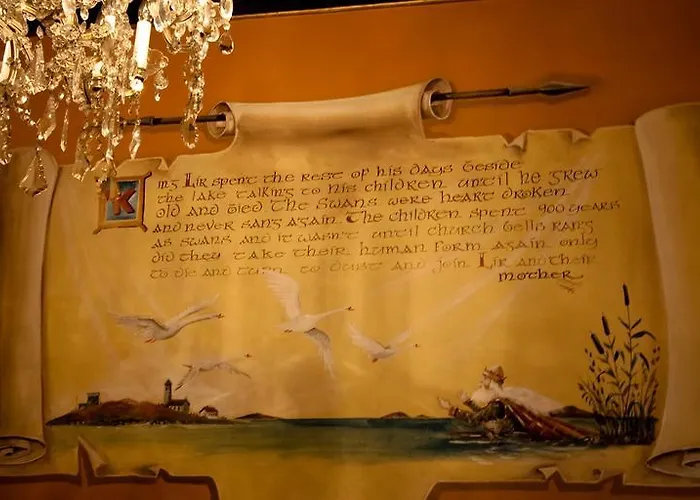 King Lir spent the rest of his days beside
the lake talking to his children until he grew
old and died The Swans were heart broken
and never sang again. The children spent 900 years
as swans and it wasn't until church bells rang
did they take their human form again only
to die and turn to dust and join Lir and their
mother